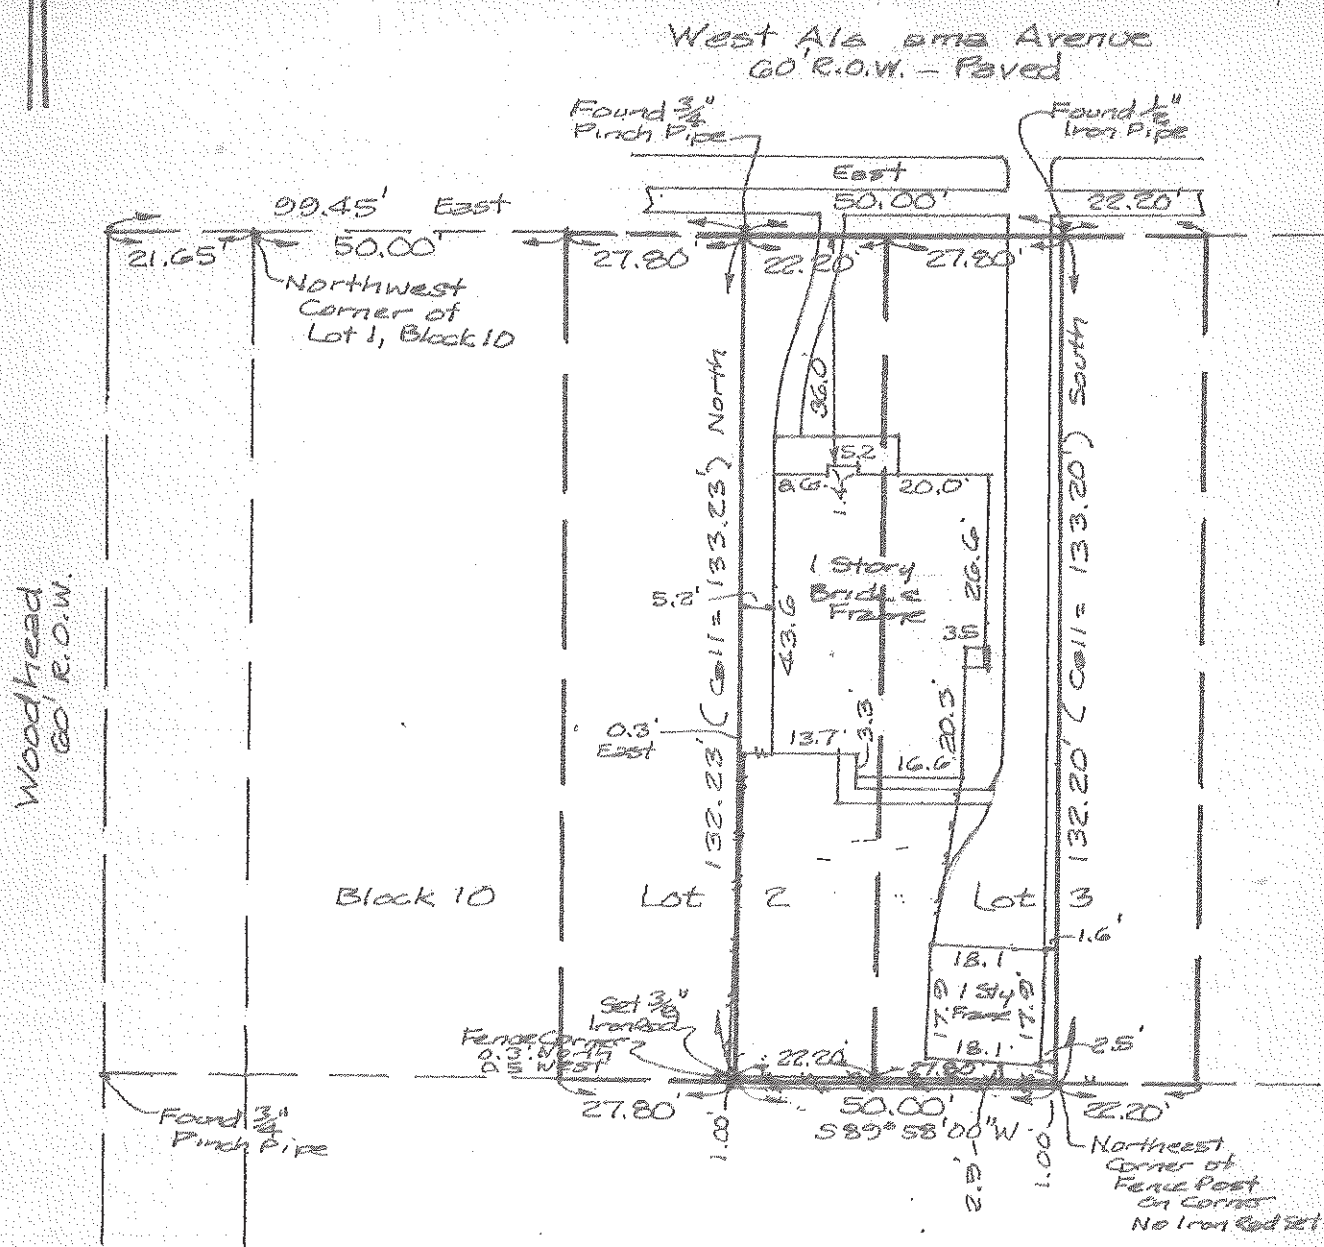 West Ala ama Avenue
60' R.O.W. — Paved
Found 3/4"
Pinch Pipe
Found 1/2"
Iron Pipe
East
50.00'
22.20'
99.45' East
21.65'
50.00'
27.80'
22.20'
27.80'
Northwest
Corner of
Lot 1, Block 10
36.0'
5.2
8.6
1.4
20.0'
132.23' (Call = 133.23') North
132.20' (Call = 133.20') South
1 Story
Frame
26.6'
5.2'
43.6
Woodhead
60' R.O.W.
0.3'
East
13.7'
3.3'
20.3'
16.6
Block 10
Lot 2
Lot 3
1.6'
18.1
17.9
1 Sty
Frame
17.9'
18.1'
2.5'
Set 3/8"
Iron Rod
Fence Corner
0.3' North
0.5' West
22.20'
27.80'
27.80'
50.00'
22.20'
S 89° 58' 00" W
1.00
2.9'
1.00
Found 3/4"
Pinch Pipe
Northeast
Corner of
Fence Post
On Corner
No Iron Rod Set